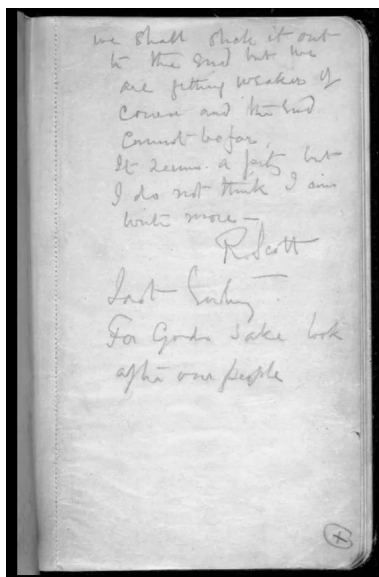 we shall stick it out
to the end but we
are getting weaker of
course and the end
cannot be far.
It seems a pity but
I do not think I can
write more –
R. Scott
Last Entry
For Gods sake look
after our people
X